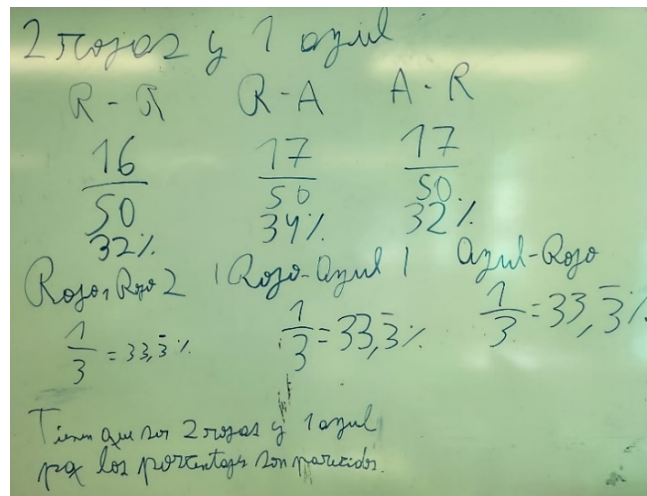 2 rojas y 1 azul
R - R R - A A - R
16/50 17/50 17/50
32% 34% 32%
Rojo1 Rojo 2 | Rojo-Azul | Azul-Rojo
1/3 = 33,3̄% 1/3 = 33,3̄% 1/3 = 33,3̄%
Tienen que ser 2 rojas y 1 azul
pq los porcentajes son parecidos.